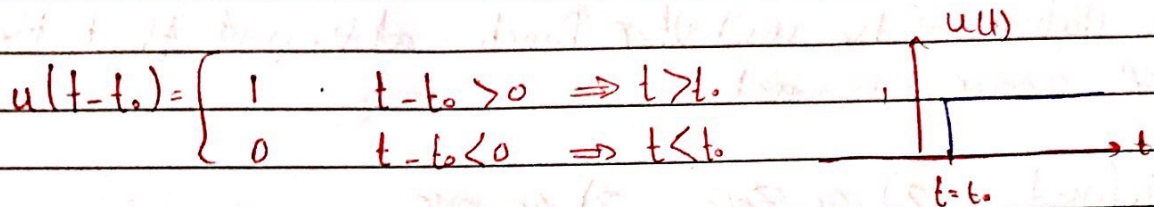 u(t)
u(t-t₀) = { 1 . t-t₀ > 0 ⇒ t > t₀
0 t-t₀ < 0 ⇒ t < t₀
1
t
t = t₀